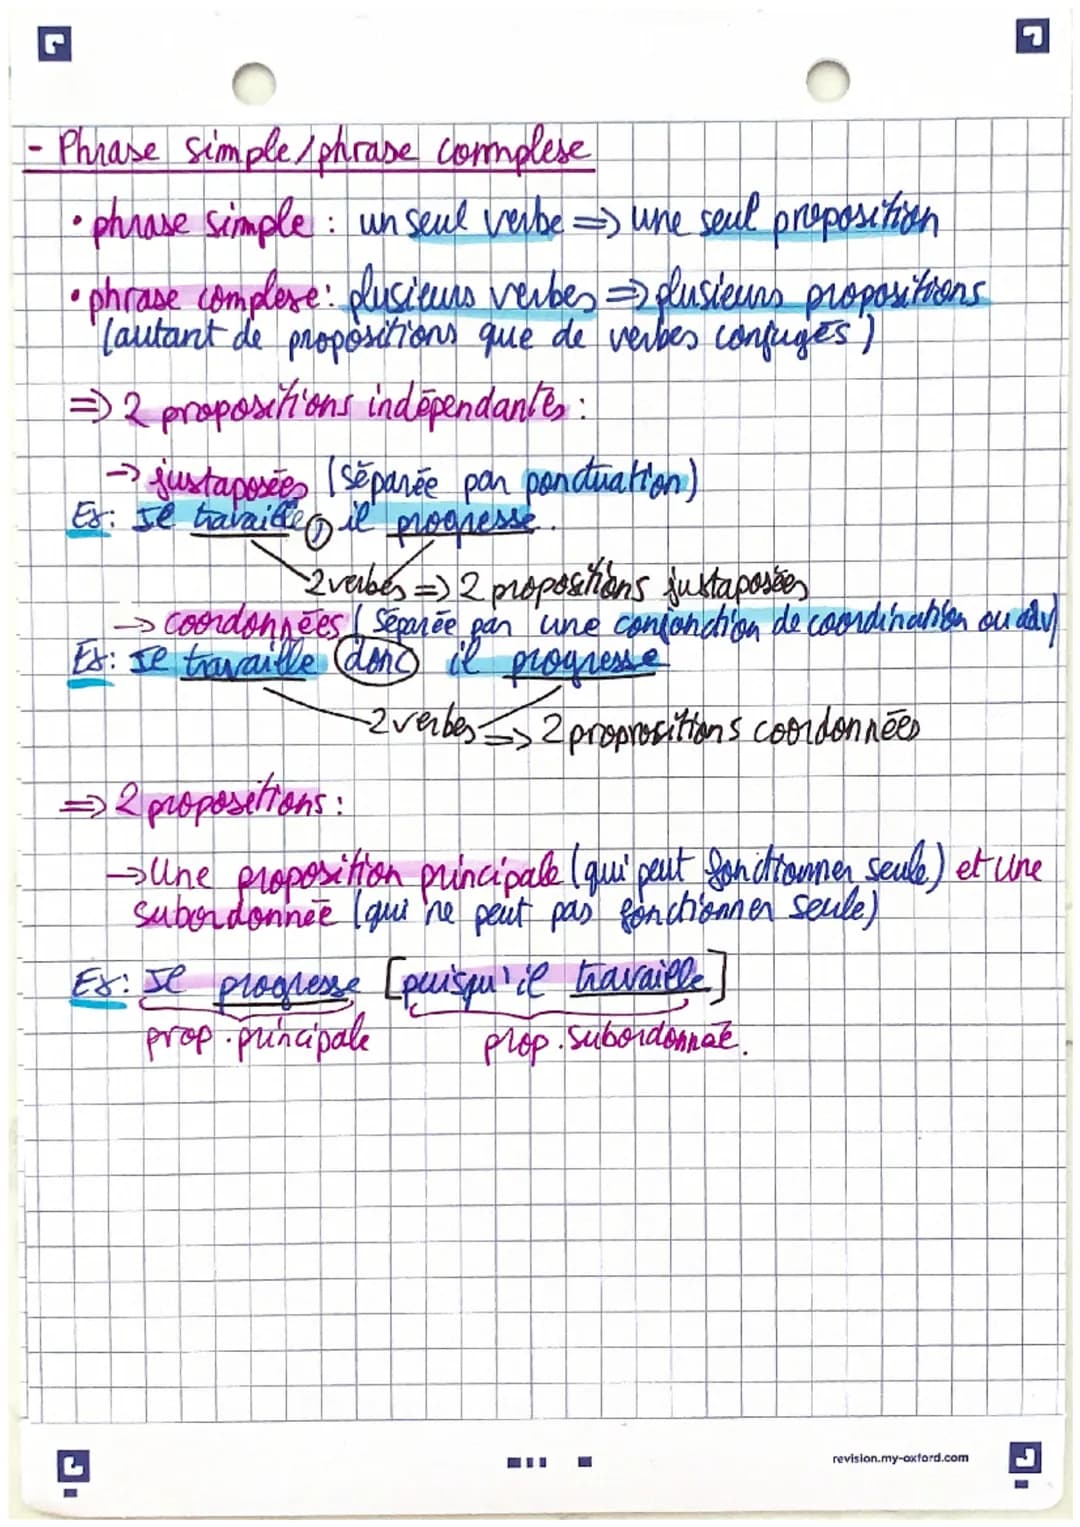 - Phrase simple/phrase complexe
• phrase simple : un seul verbe => une seul proposition
• phrase complexe : plusieurs verbes => plusieurs propositions
(autant de propositions que de verbes conjugés)
=> 2 propositions indépendantes :
-> juxtaposées (séparée par ponctuation)
Ex: Il travaille, il progresse.
2 verbes => 2 propositions juxtaposées
-> coordonnées (séparée par une conjonction de coordination ou adv)
Ex: Il travaille donc il progresse
2 verbes => 2 proprositions coordonnées
=> 2 propositions :
-> Une proposition principale (qui peut fonctionner seule) et une
subordonnée (qui ne peut pas fonctionner seule)
Ex: Il progresse [puisqu'il travaille]
prop. principale prop. subordonnée.
revision.my-oxford.com